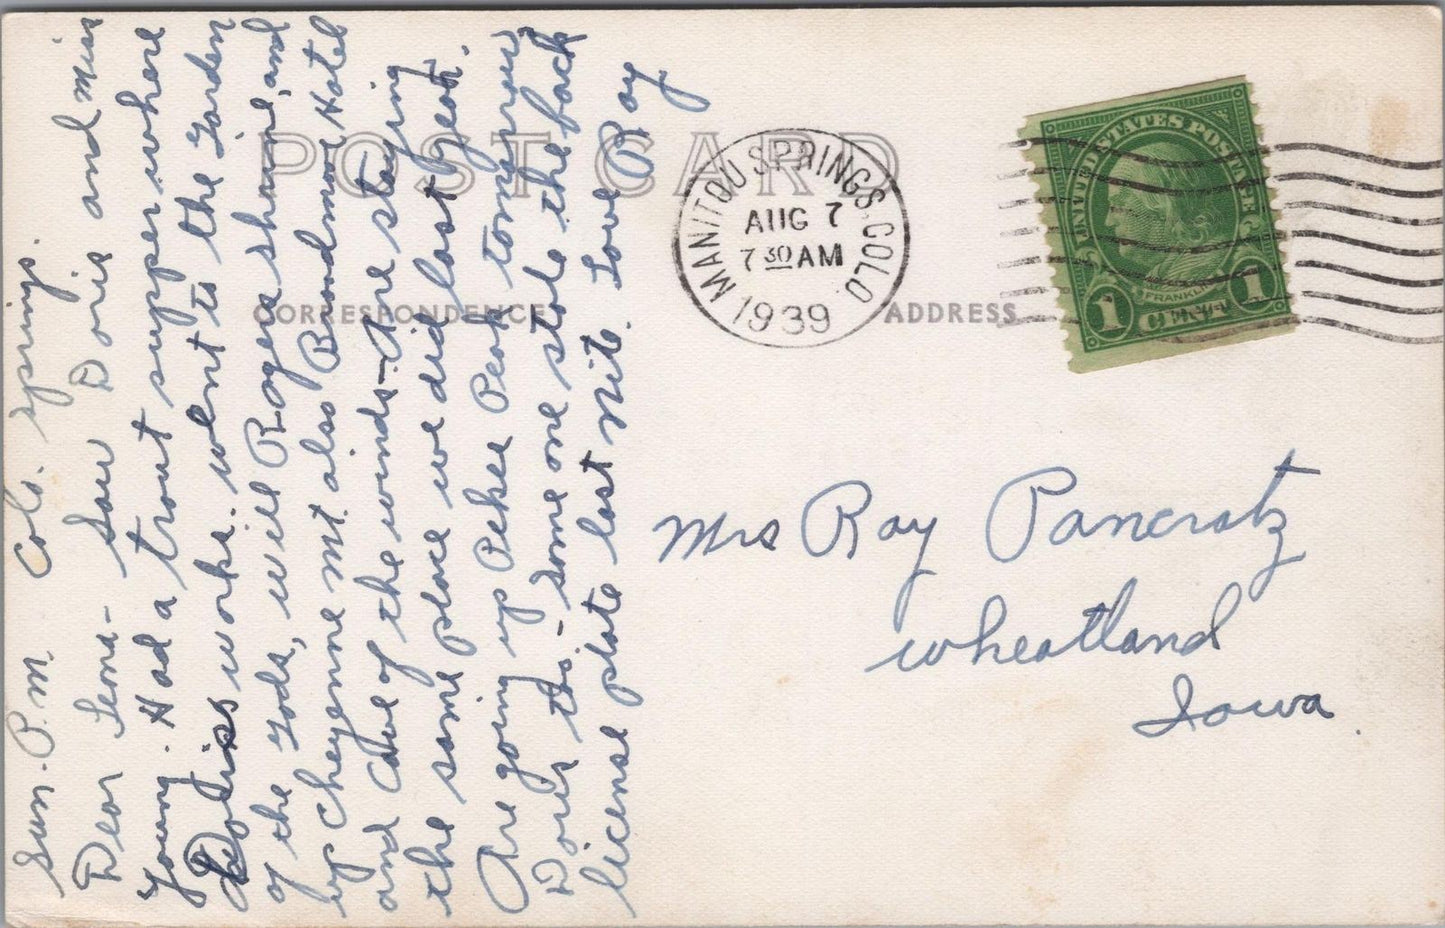 Sun. P.M. Colo. Springs.
Dear Leona - Saw Doris and Miss
Young. Had a trout supper where
Doris works. went to the Garden
of the Gods, will Rogers shrine, and
up Cheyenne mt also Broadmoor Hotel
and Cave of the winds - Are staying
the same place we did last year.
Are going up Pikes Peak tomorrow
Doris too - Some one stole the back
license plate last nite. Love Ray
POST CARD
CORRESPONDENCE
ADDRESS
MANITOU SPRINGS. COLO.
AUG 7
7 30 AM
1939
UNITED STATES POSTAGE
FRANKLIN
1 CENT 1
Mrs Ray Pancratz
Wheatland
Iowa.